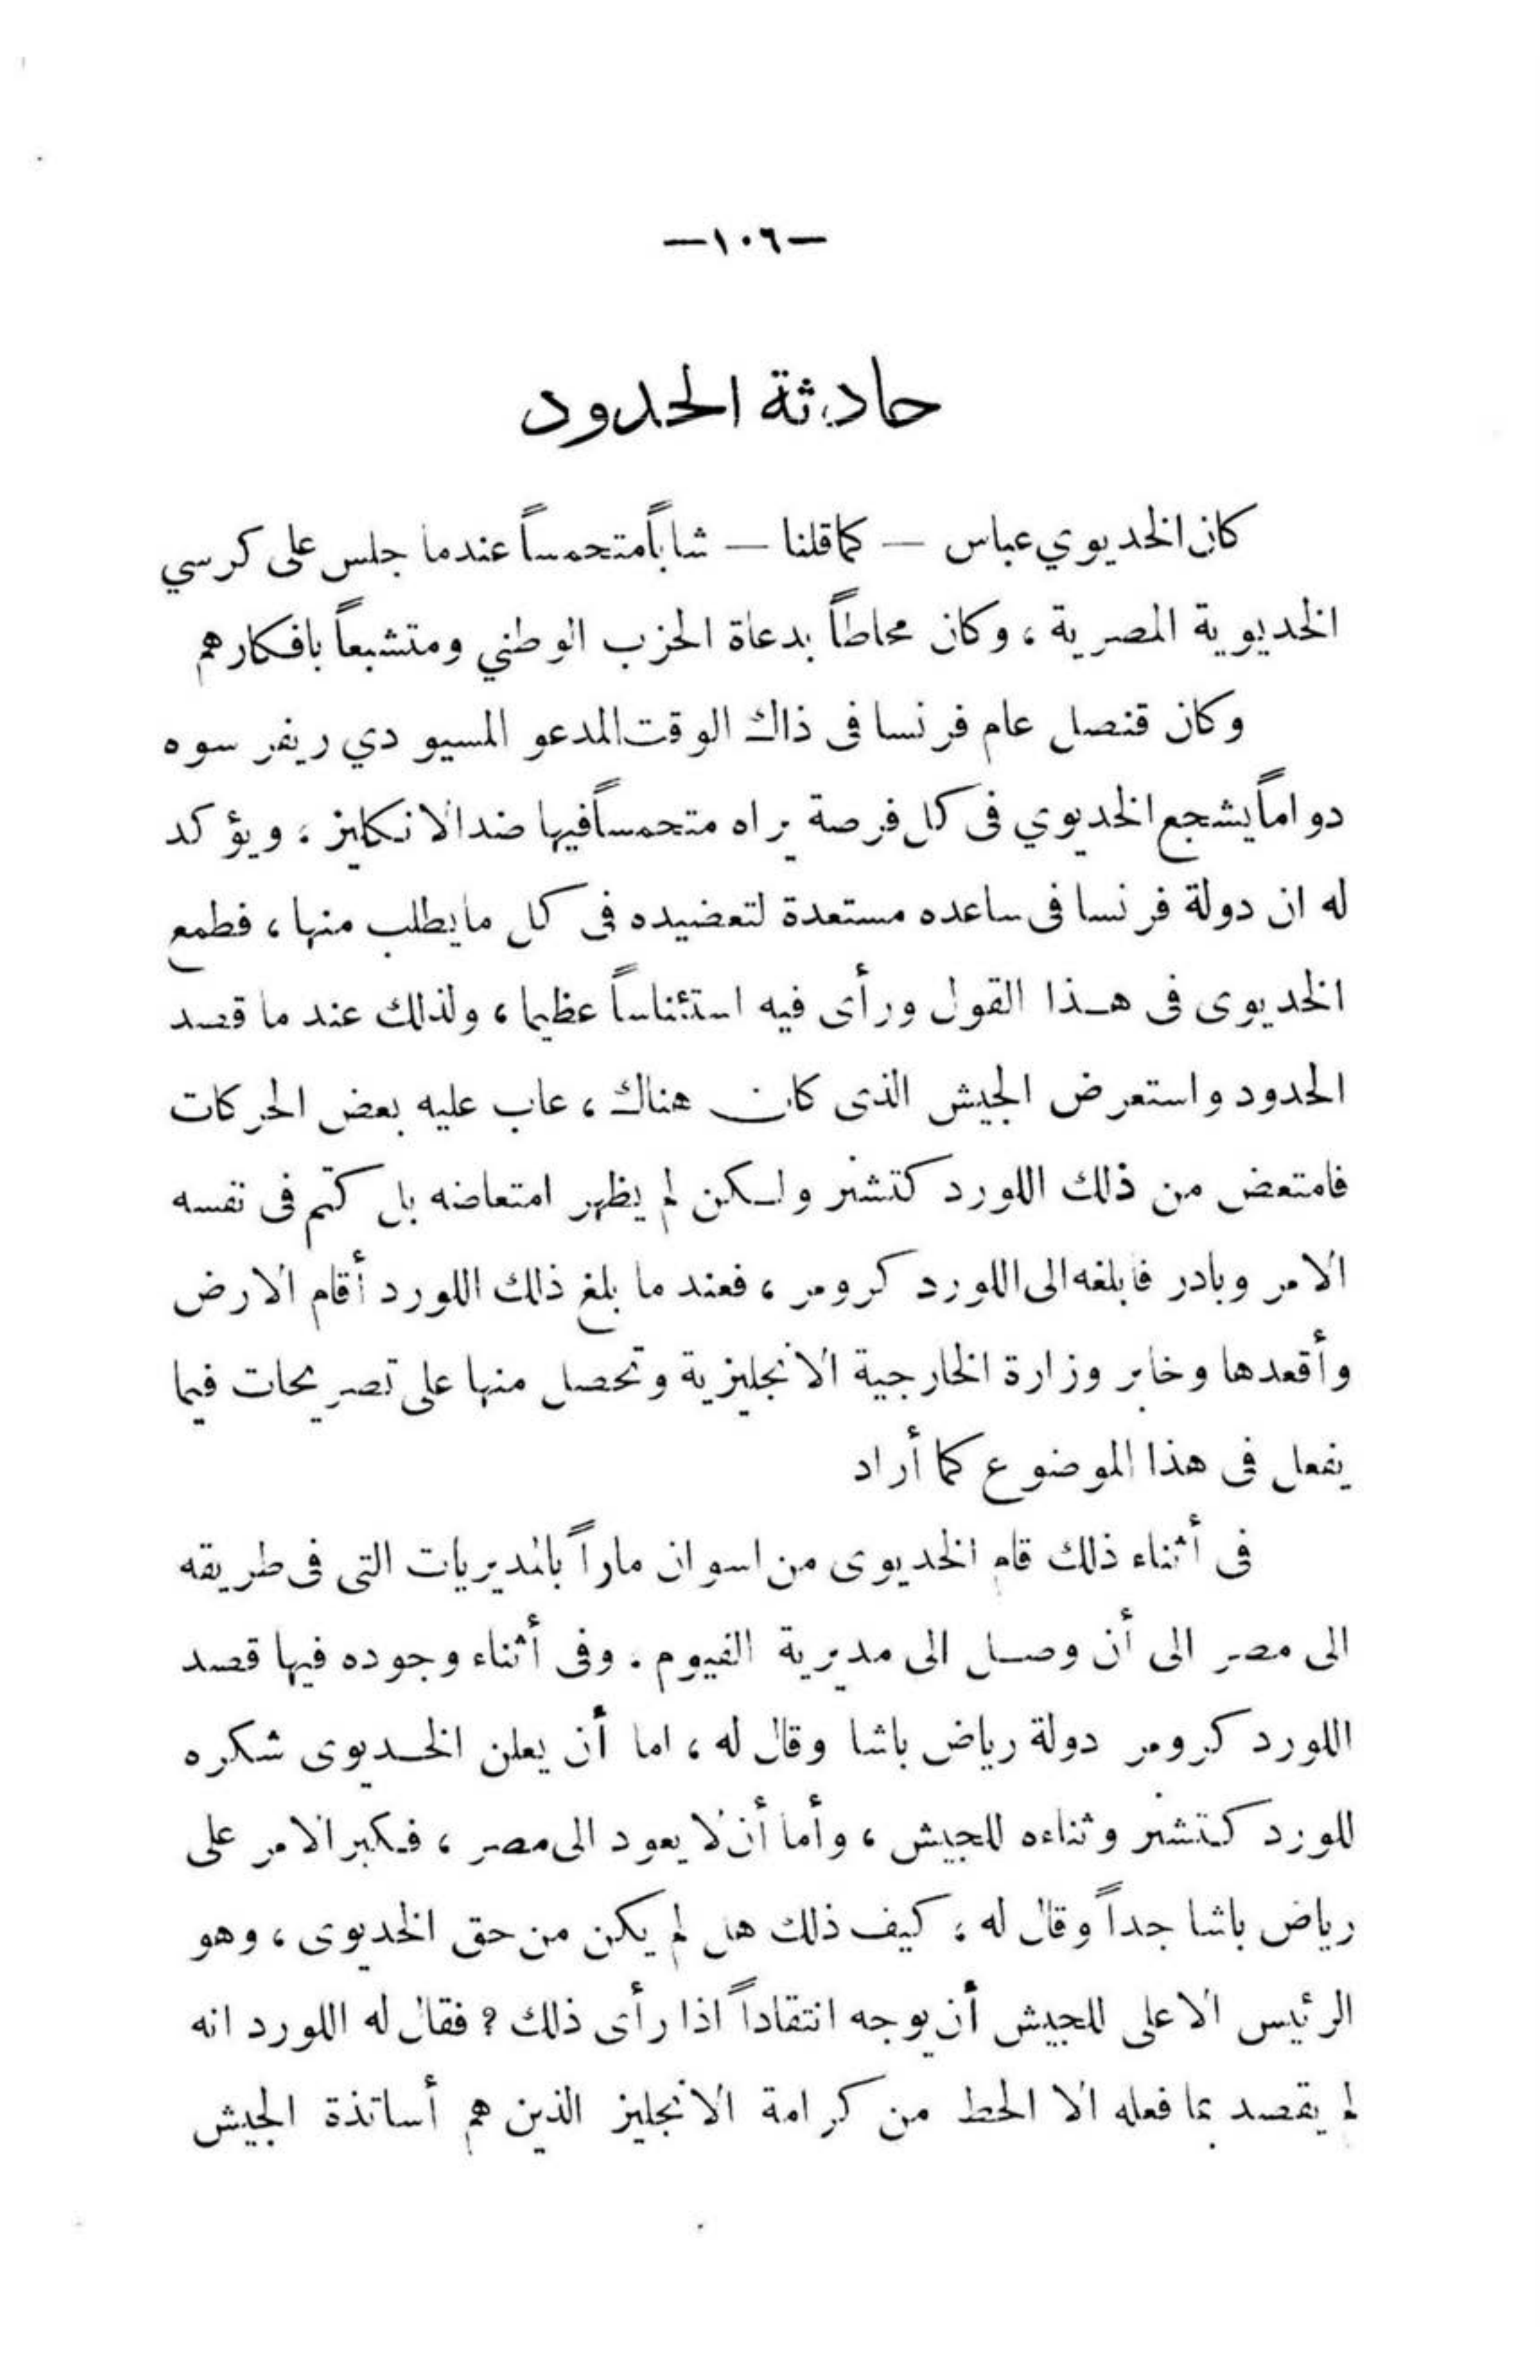 —١٠٦—
حادثة الحدود
كان الخديوي عباس — كما قلنا — شاباً متحمساً عندما جلس على كرسي
الخديوية المصرية ، وكان محاطاً بدعاة الحزب الوطني ومتشبعاً بافكارهم
وكان قنصل عام فرنسا فى ذاك الوقت المدعو المسيو دي ريفرسوه
دواماً يشجع الخديوي فى كل فرصة يراه متحمساً فيها ضد الانكليز ، ويؤكد
له ان دولة فرنسا فى ساعده مستعدة لتعضيده فى كل ما يطلب منها ، فطمع
الخديوى فى هـذا القول ورأى فيه استئناساً عظيما ، ولذلك عند ما قصد
الحدود واستعرض الجيش الذى كان هناك ، عاب عليه بعض الحركات
فامتعض من ذلك اللورد كتشنر ولـكن لم يظهر امتعاضه بل كتّم فى نفسه
الامر وبادر فابلغه الى اللورد كرومر ، فعند ما بلغ ذلك اللورد أقام الارض
وأقعدها وخابر وزارة الخارجية الانجليزية وتحصل منها على تصريحات فيما
يفعل فى هذا الموضوع كما أراد
فى أثناء ذلك قام الخديوى من اسوان ماراً بالمديريات التى فى طريقه
الى مصر الى أن وصـل الى مديرية الفيوم . وفى أثناء وجوده فيها قصد
اللورد كرومر دولة رياض باشا وقال له ، اما أن يعلن الخـديوى شكره
للورد كتشنر وثناءه للجيش ، وأما أن لا يعود الى مصر ، فـكبر الامر على
رياض باشا جداً وقال له ؛ كيف ذلك هل لم يكن من حق الخديوى ، وهو
الرئيس الاعلى للجيش أن يوجه انتقاداً اذا رأى ذلك ؟ فقال له اللورد انه
لم يقصد بما فعله الا الحط من كرامة الانجليز الذين هم أساتذة الجيش